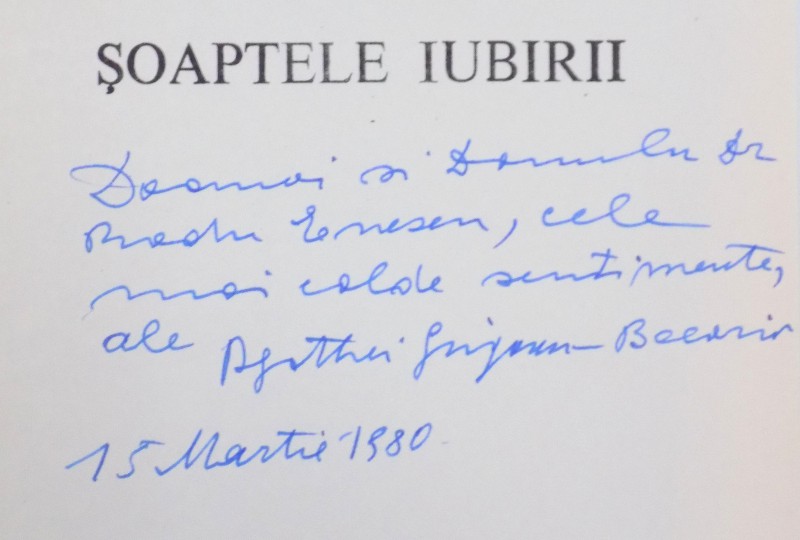 ȘOAPTELE IUBIRII
Doamnei și Domnului Dr
Radu Enescu, cele
mai calde sentimente,
ale Agathei Grigorescu-Bacovia
15 Martie 1980